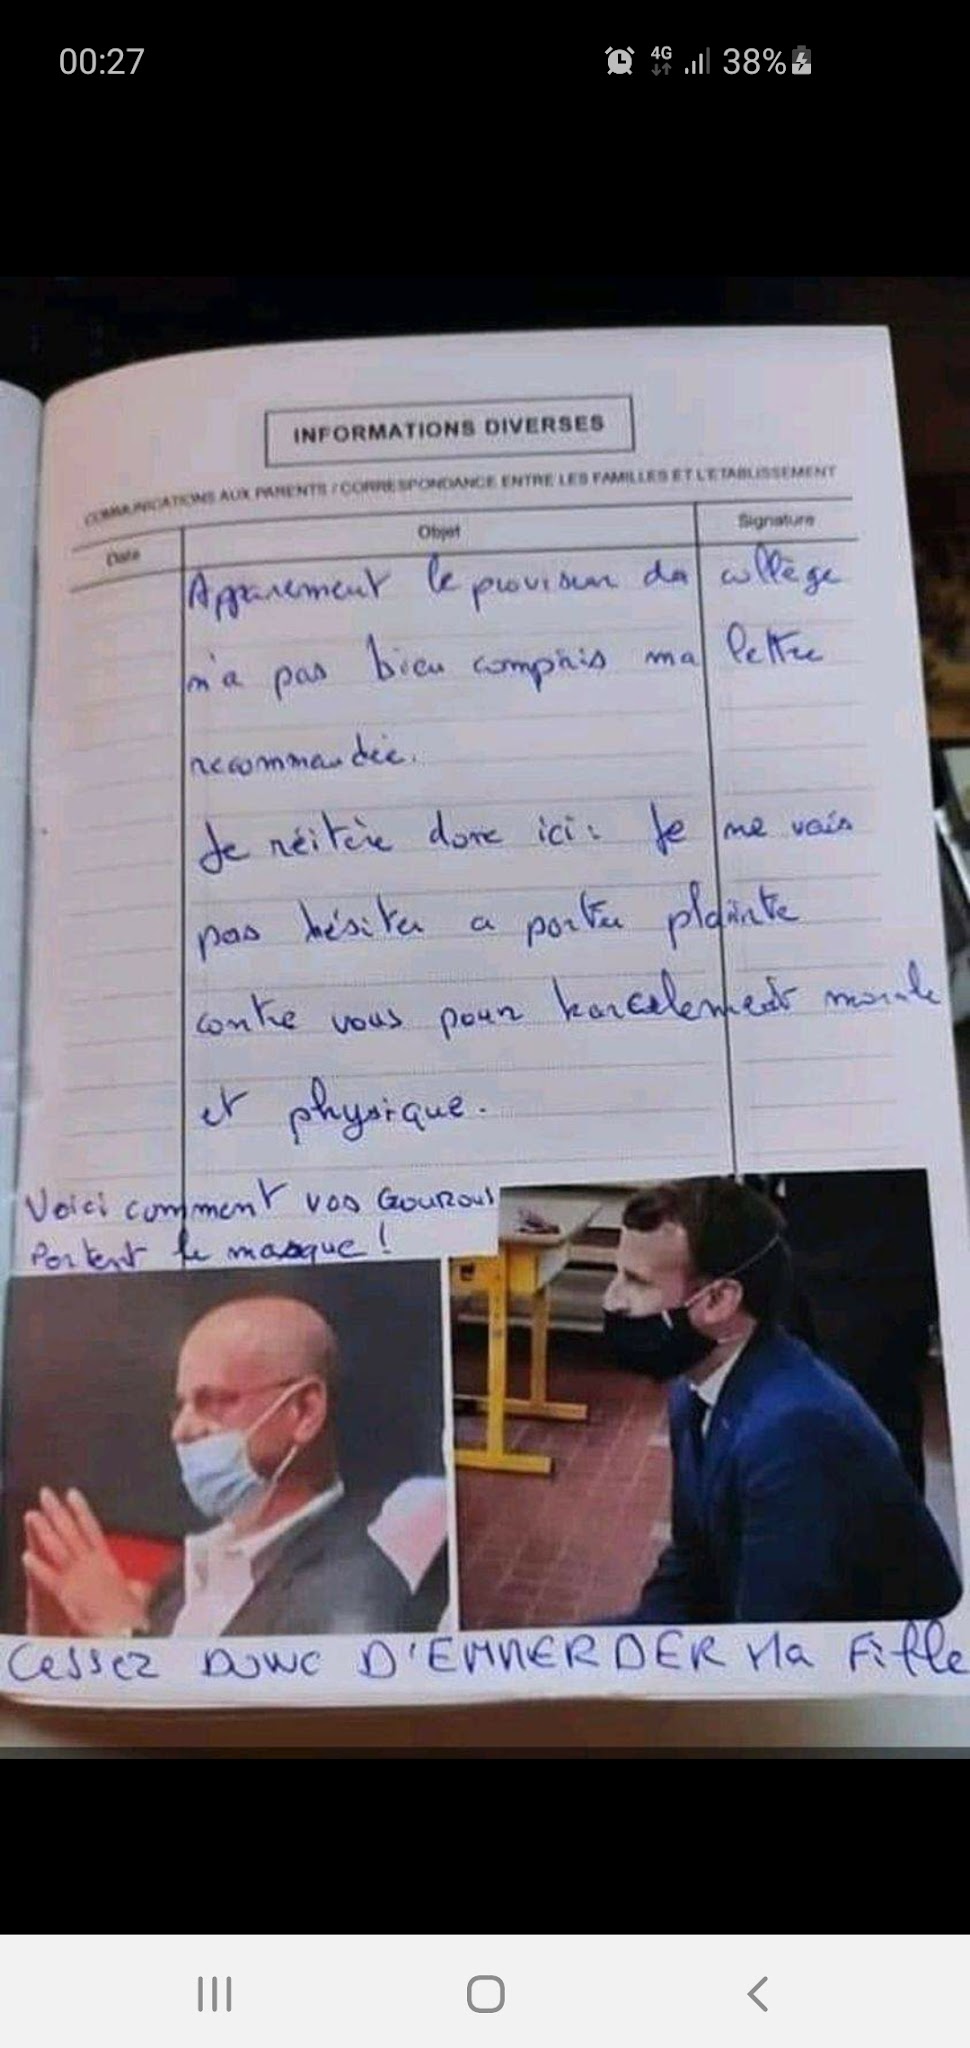 00:27
4G
38%
INFORMATIONS DIVERSES
COMMUNICATIONS AUX PARENTS / CORRESPONDANCE ENTRE LES FAMILLES ET L'ETABLISSEMENT
Date
Objet
Signature
Apparement le proviseur du collège
n'a pas bien compris ma lettre
recommandée.
Je réitère donc ici: Je me vais
pas hésiter a porter plainte
contre vous pour harcelement morale
et physique.
Voici comment vos Gourous
Portent le masque !
Cessez DONC D'EMMERDER Ma Fille